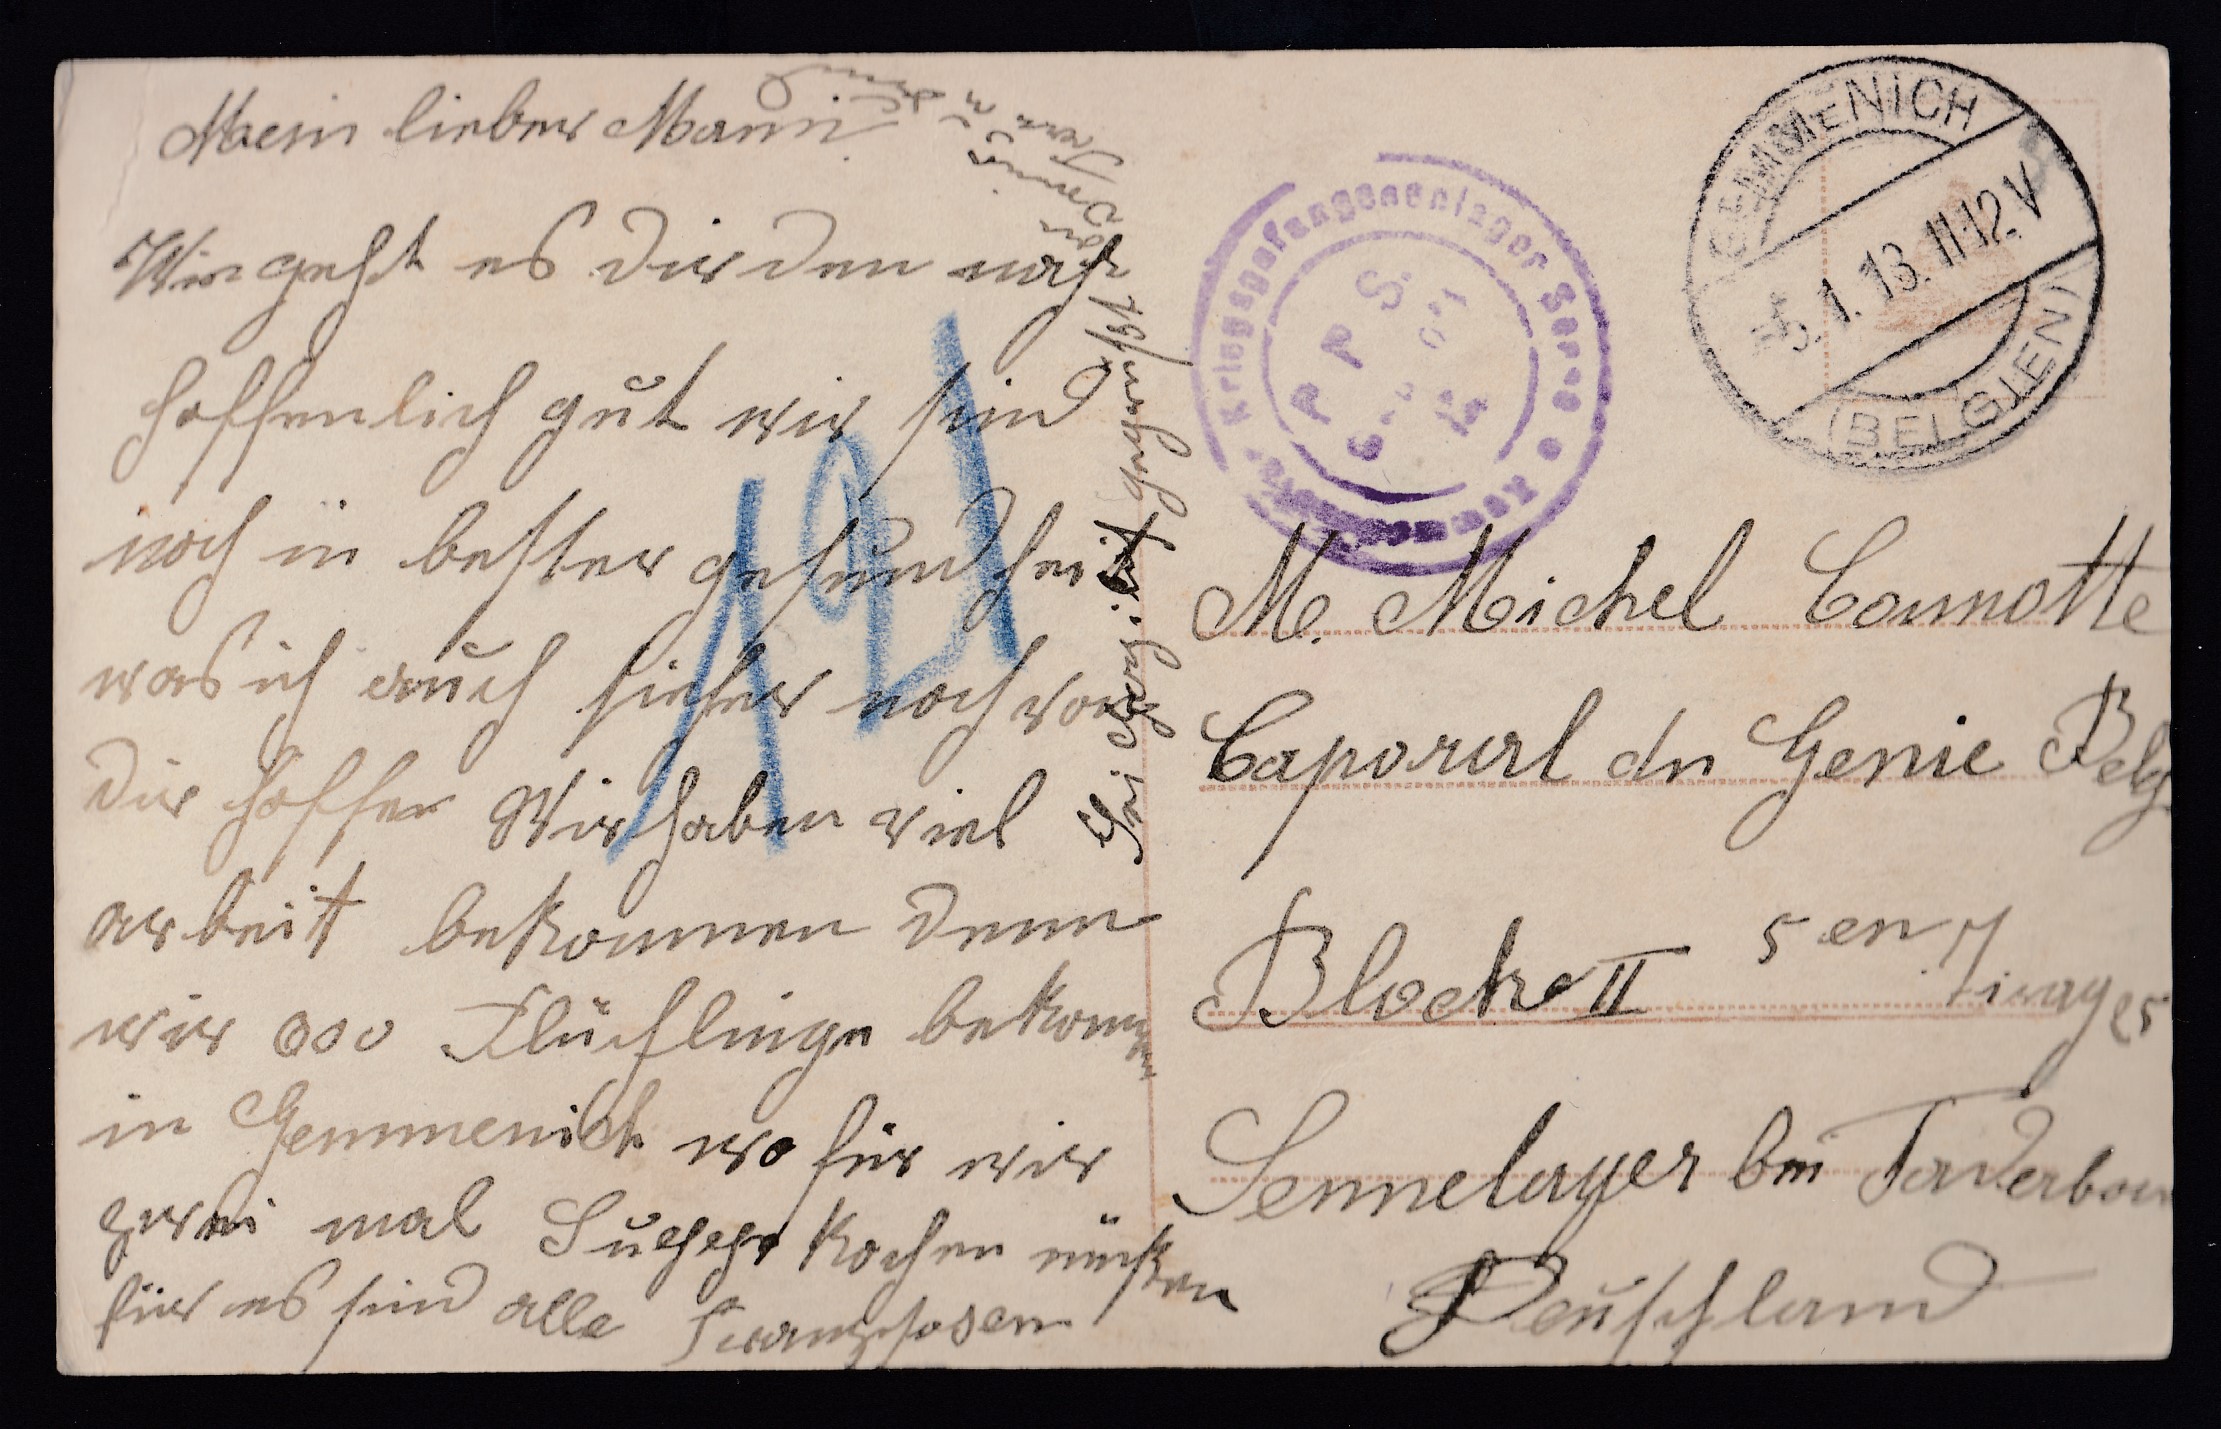 Mein lieber Mann
Wie geht es dir den noch
hoffenlich gut wir sind
noch in bester gesundheit
was ich auch sicher noch von
dir hoffen Wir haben viel
arbeit bekommen denn
wir 600 Flüchlinge bekommen
in Gemmenich wo für wir
zwei mal Suppe kochen müssen
für es sind alle Franzhosen
Sei herzlich gegrüßt
von Deine
Frau
121
Kriegsgefangenenlager Senne
P P S
GEMMENICH
5.1.18.11-12.V
(BELGIEN)
M. Michel Connotte
Caporal du Genie Belg
Block II 5en
Sennelager bei Paderborn
Deutschland